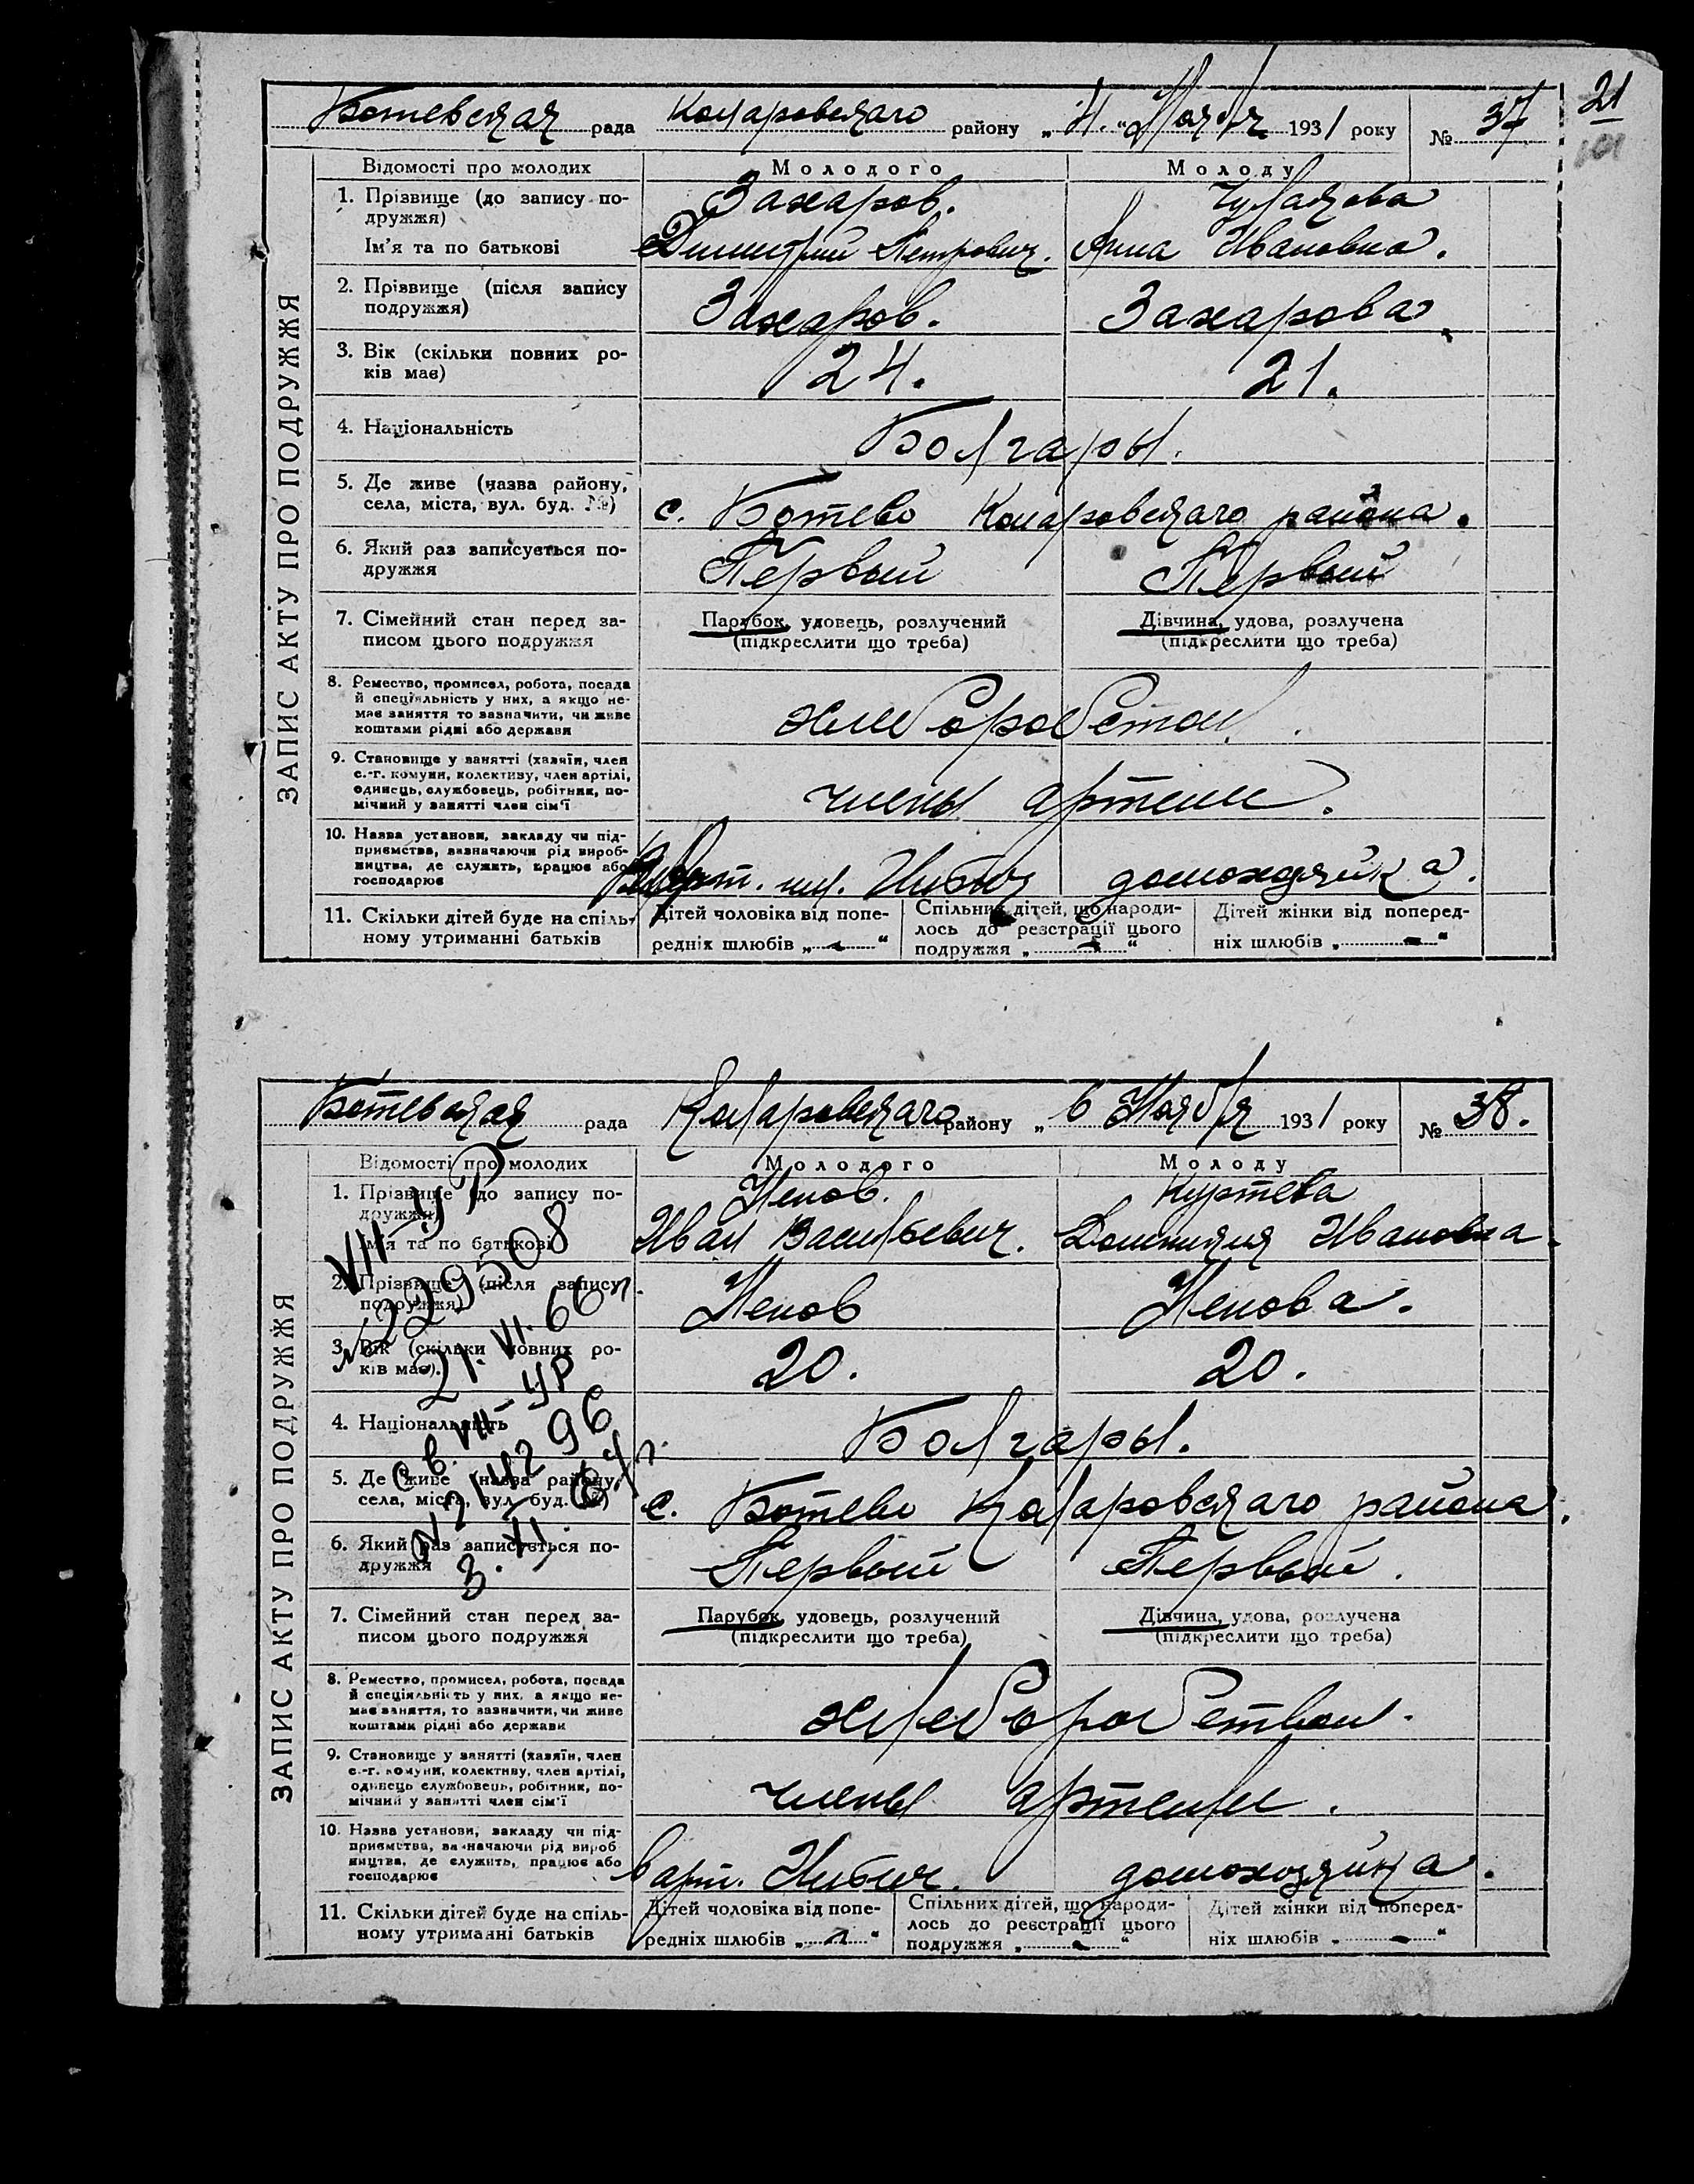 21
Ботевская рада Коларовскаго району „4.“ Ноября 1931 року № 37
ЗАПИС АКТУ ПРО ПОДРУЖЖЯ
Відомості про молодих Молодого Молоду
1. Прізвище (до запису по- Захаров.
дружжя)
Ім'я та по батькові Димитрий Петрович. Анна Ивановна.
2. Прізвище (після запису
подружжя) Захаров. Захарова
3. Вік (скільки повних ро-
ків має) 24. 21.
4. Національність Болгары.
5. Де живе (назва району,
села, міста, вул. буд. №) с. Ботево Коларовскаго района.
6. Який раз записується по-
дружжя Первый Первый
7. Сімейний стан перед за- Парубок, удовець, розлучений Дівчина, удова, розлучена
писом цього подружжя (підкреслити що треба) (підкреслити що треба)
8. Ремество, промисел, робота, посада
й спеціяльність у них, а якщо не-
має заняття то зазначити, чи живе
коштами рідні або держави
9. Становище у занятті (хазяїн, член
с.-г. комуни, колективу, член артілі,
одинець, службовець, робітник, по-
мічний у занятті член сім'ї члены артели.
10. Назва установи, закладу чи під-
приємства, визначаючи рід вироб-
ництва, де служить, працює або
господарює домохозяйка.
11. Скільки дітей буде на спіль- Дітей чоловіка від попе- Спільних дітей, що народи- Дітей жінки від поперед-
ному утриманні батьків редніх шлюбів „-“ лось до реєстрації цього ніх шлюбів „-“
подружжя „-“
Ботевская рада Коларовскаго району „6 Ноября 1931 року № 38.
ЗАПИС АКТУ ПРО ПОДРУЖЖЯ
Відомості про молодих Молодого Молоду
1. Прізвище (до запису по- Ненов. Куртева
дружжя)
Ім'я та по батькові Иван Васильевич. Ивановна
2. Прізвище (після запису
подружжя) Ненов Ненова.
3. Вік (скільки повних ро-
ків має). 20. 20.
4. Національність Болгары.
5. Де живе (назва району,
села, міста, вул. буд. №) с. Ботево Коларовскаго района.
6. Який раз записується по-
дружжя Первый Первый.
7. Сімейний стан перед за- Парубок, удовець, розлучений Дівчина, удова, розлучена
писом цього подружжя (підкреслити що треба) (підкреслити що треба)
8. Ремество, промисел, робота, посада
й спеціяльність у них, а якщо не-
має заняття, то зазначити, чи живе
коштами рідні або держави хлеборобством.
9. Становище у занятті (хазяїн, член
с.-г. комуни, колективу, член артілі,
одинець службовець, робітник, по-
мічний у занятті член сім'ї члены артели.
10. Назва установи, закладу чи під-
приємства, визначаючи рід вироб
ництва, де служить, працює або
господарює в арт. домохозяйка.
11. Скільки дітей буде на спіль- Дітей чоловіка від попе- Спільних дітей, що народи- Дітей жінки від поперед-
ному утриманні батьків редніх шлюбів „-“ лось до реєстрації цього ніх шлюбів „-“
подружжя „-“
VII-УР
№ 229508
21.VI.66 г.
с в. VII-УР
3.XI.64 г.